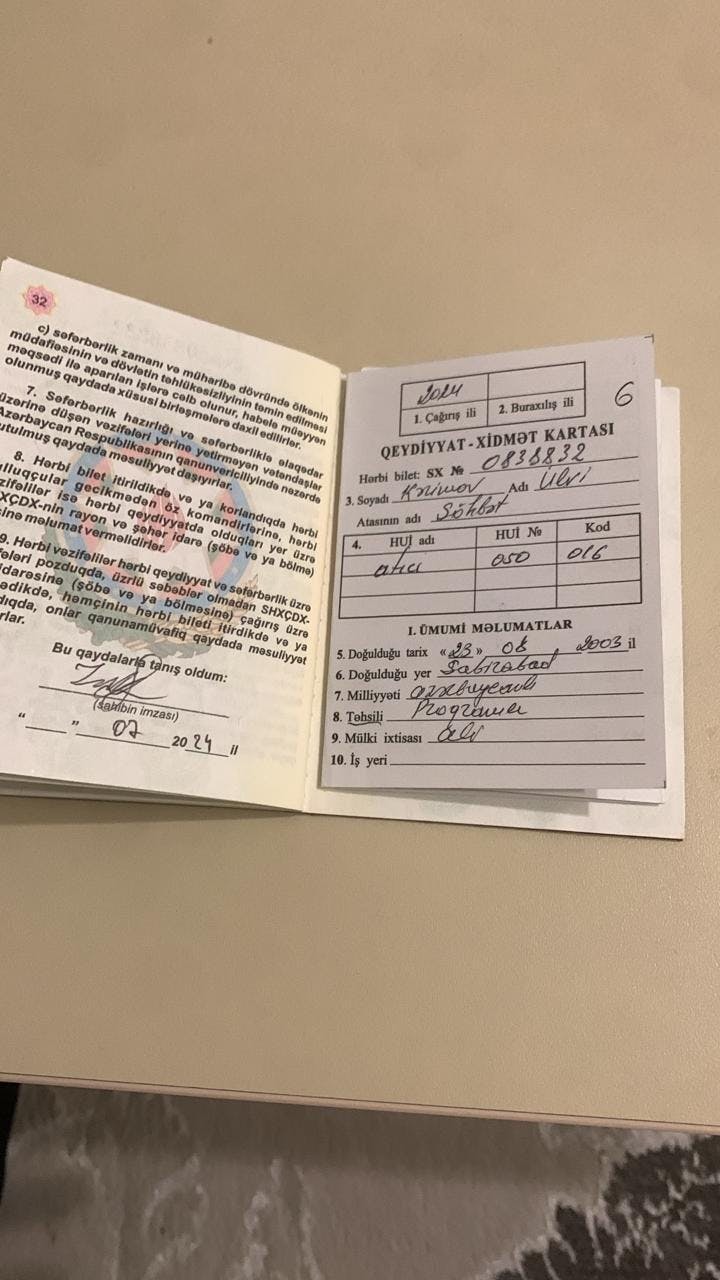 32
c) səfərbərlik zamanı və müharibə dövründə ölkənin
müdafiəsinin və dövlətin təhlükəsizliyinin təmin edilməsi
məqsədi ilə aparılan işlərə cəlb olunur, habelə müəyyən
olunmuş qaydada xüsusi birləşmələrə daxil edilirlər.
7. Səfərbərlik hazırlığı və səfərbərliklə əlaqədar
üzərinə düşən vəzifələri yerinə yetirməyən vətəndaşlar
Azərbaycan Respublikasının qanunvericiliyində nəzərdə
utulmuş qaydada məsuliyyət daşıyırlar.
8. Hərbi bilet itirildikdə və ya korlandıqda hərbi
ulluqçular gecikmədən öz komandirlərinə, hərbi
zifəlilər isə hərbi qeydiyyatda olduqları yer üzrə
XÇDX-nin rayon və şəhər idarə (şöbə və ya bölmə)
sinə məlumat verməlidirlər.
9. Hərbi vəzifəlilər hərbi qeydiyyat və səfərbərlik üzrə
fələri pozduqda, üzrlü səbəblər olmadan SHXÇDX-
idarəsinə (şöbə və ya bölməsinə) çağırış üzrə
ədikdə, həmçinin hərbi bileti itirdikdə və ya
dıqda, onlar qanunamüvafiq qaydada məsuliyyət
rlar.
Bu qaydalarla tanış oldum:
(sahibin imzası)
"____" 07 2024 il
2024
1. Çağırış ili 2. Buraxılış ili
6
QEYDİYYAT-XİDMƏT KARTASI
Hərbi bilet: SX № 0838832
3. Soyadı Kərimov Adı Ülvi
Atasının adı Söhbət
4. HUİ adı HUİ № Kod
atıcı 050 016
I. ÜMUMİ MƏLUMATLAR
5. Doğulduğu tarix «23» 08 2003 il
6. Doğulduğu yer Sabirabad
7. Milliyyəti azərbaycanlı
8. Təhsili
9. Mülki ixtisası
10. İş yeri